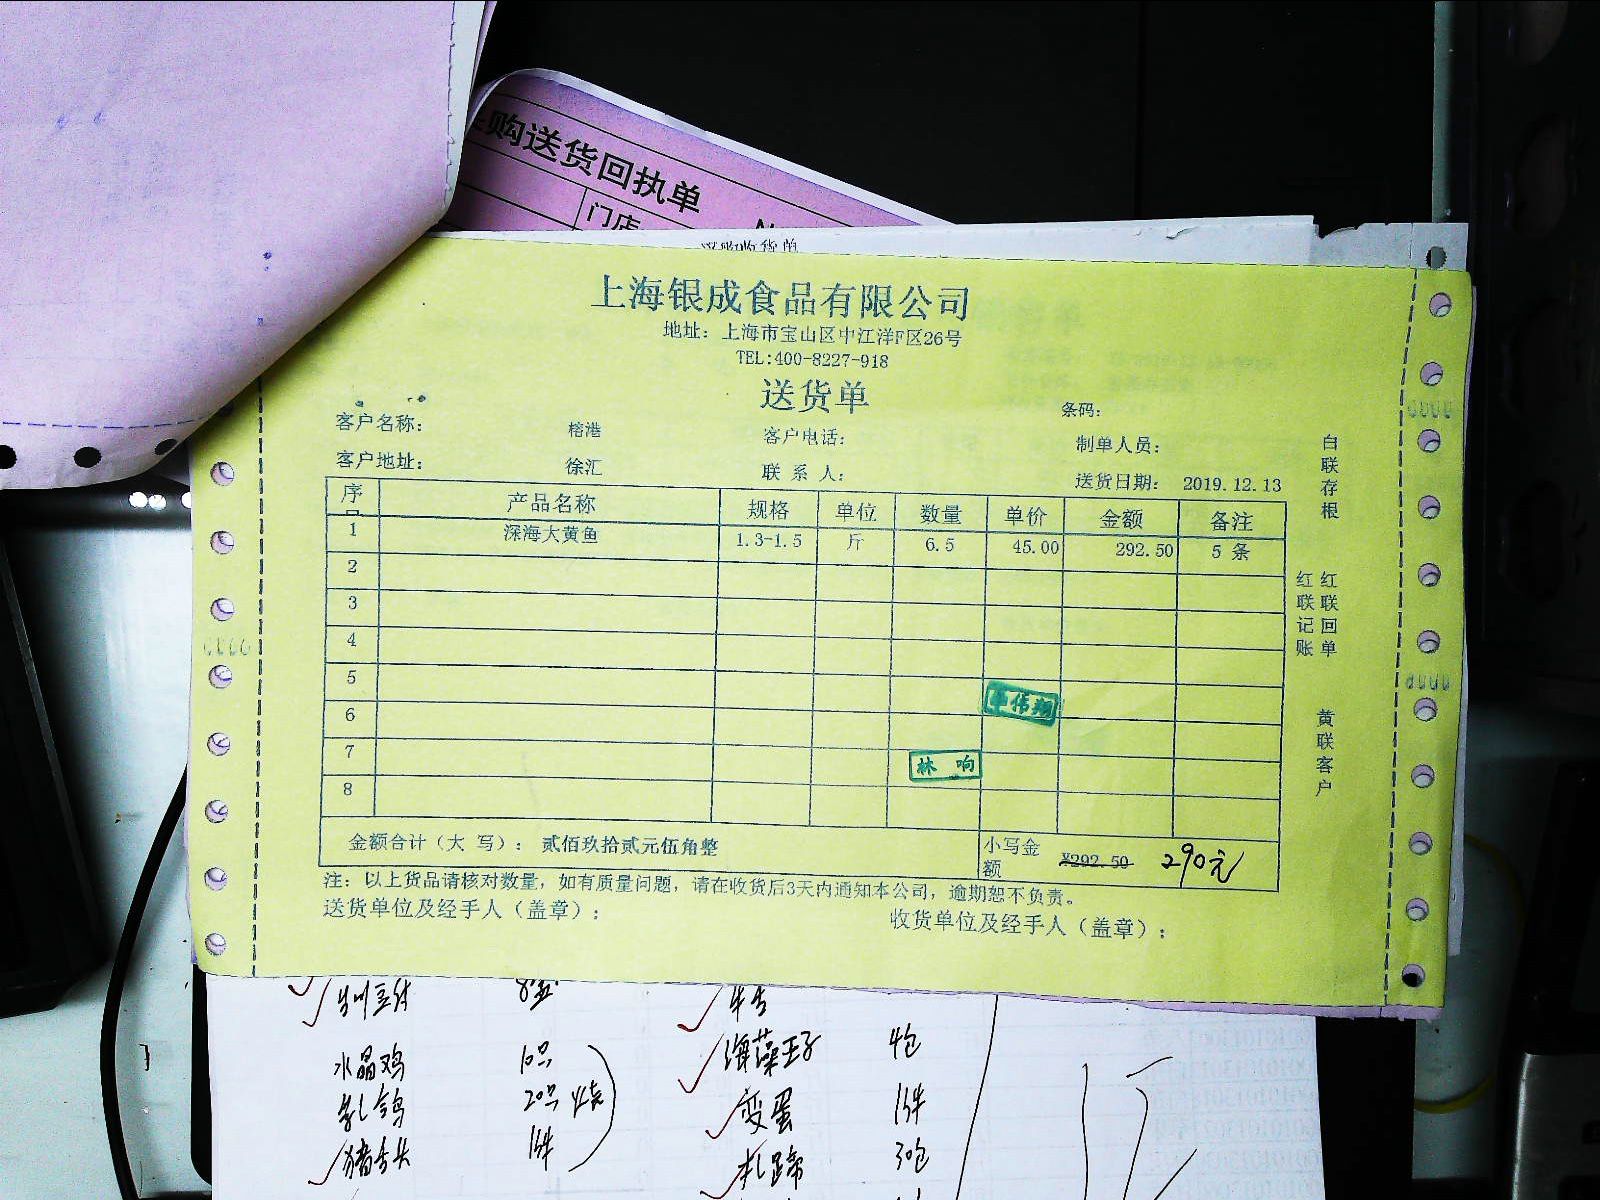 购送货回执单
门店
上海银成食品有限公司
地址：上海市宝山区中江洋F区26号
TEL:400-8227-918
送货单
条码：
客户名称： 榕港 客户电话： 制单人员：
客户地址： 徐汇 联系人： 送货日期： 2019.12.13
序 产品名称 规格 单位 数量 单价 金额 备注
1 深海大黄鱼 1.3-1.5 斤 6.5 45.00 292.50 5 条
2
3
4
5
6
7
8
林响
金额合计（大 写）： 贰佰玖拾贰元伍角整 小写金额 ¥292.50 290元
注：以上货品请核对数量，如有质量问题，请在收货后3天内通知本公司，逾期恕不负责。
送货单位及经手人（盖章）： 收货单位及经手人（盖章）：
白联存根
红联回单
红联记账
黄联客户
水晶鸡 10只
乳鸽 20只
猪舌头 1件
海藻王子 4包
变蛋 1件
扎蹄 30包